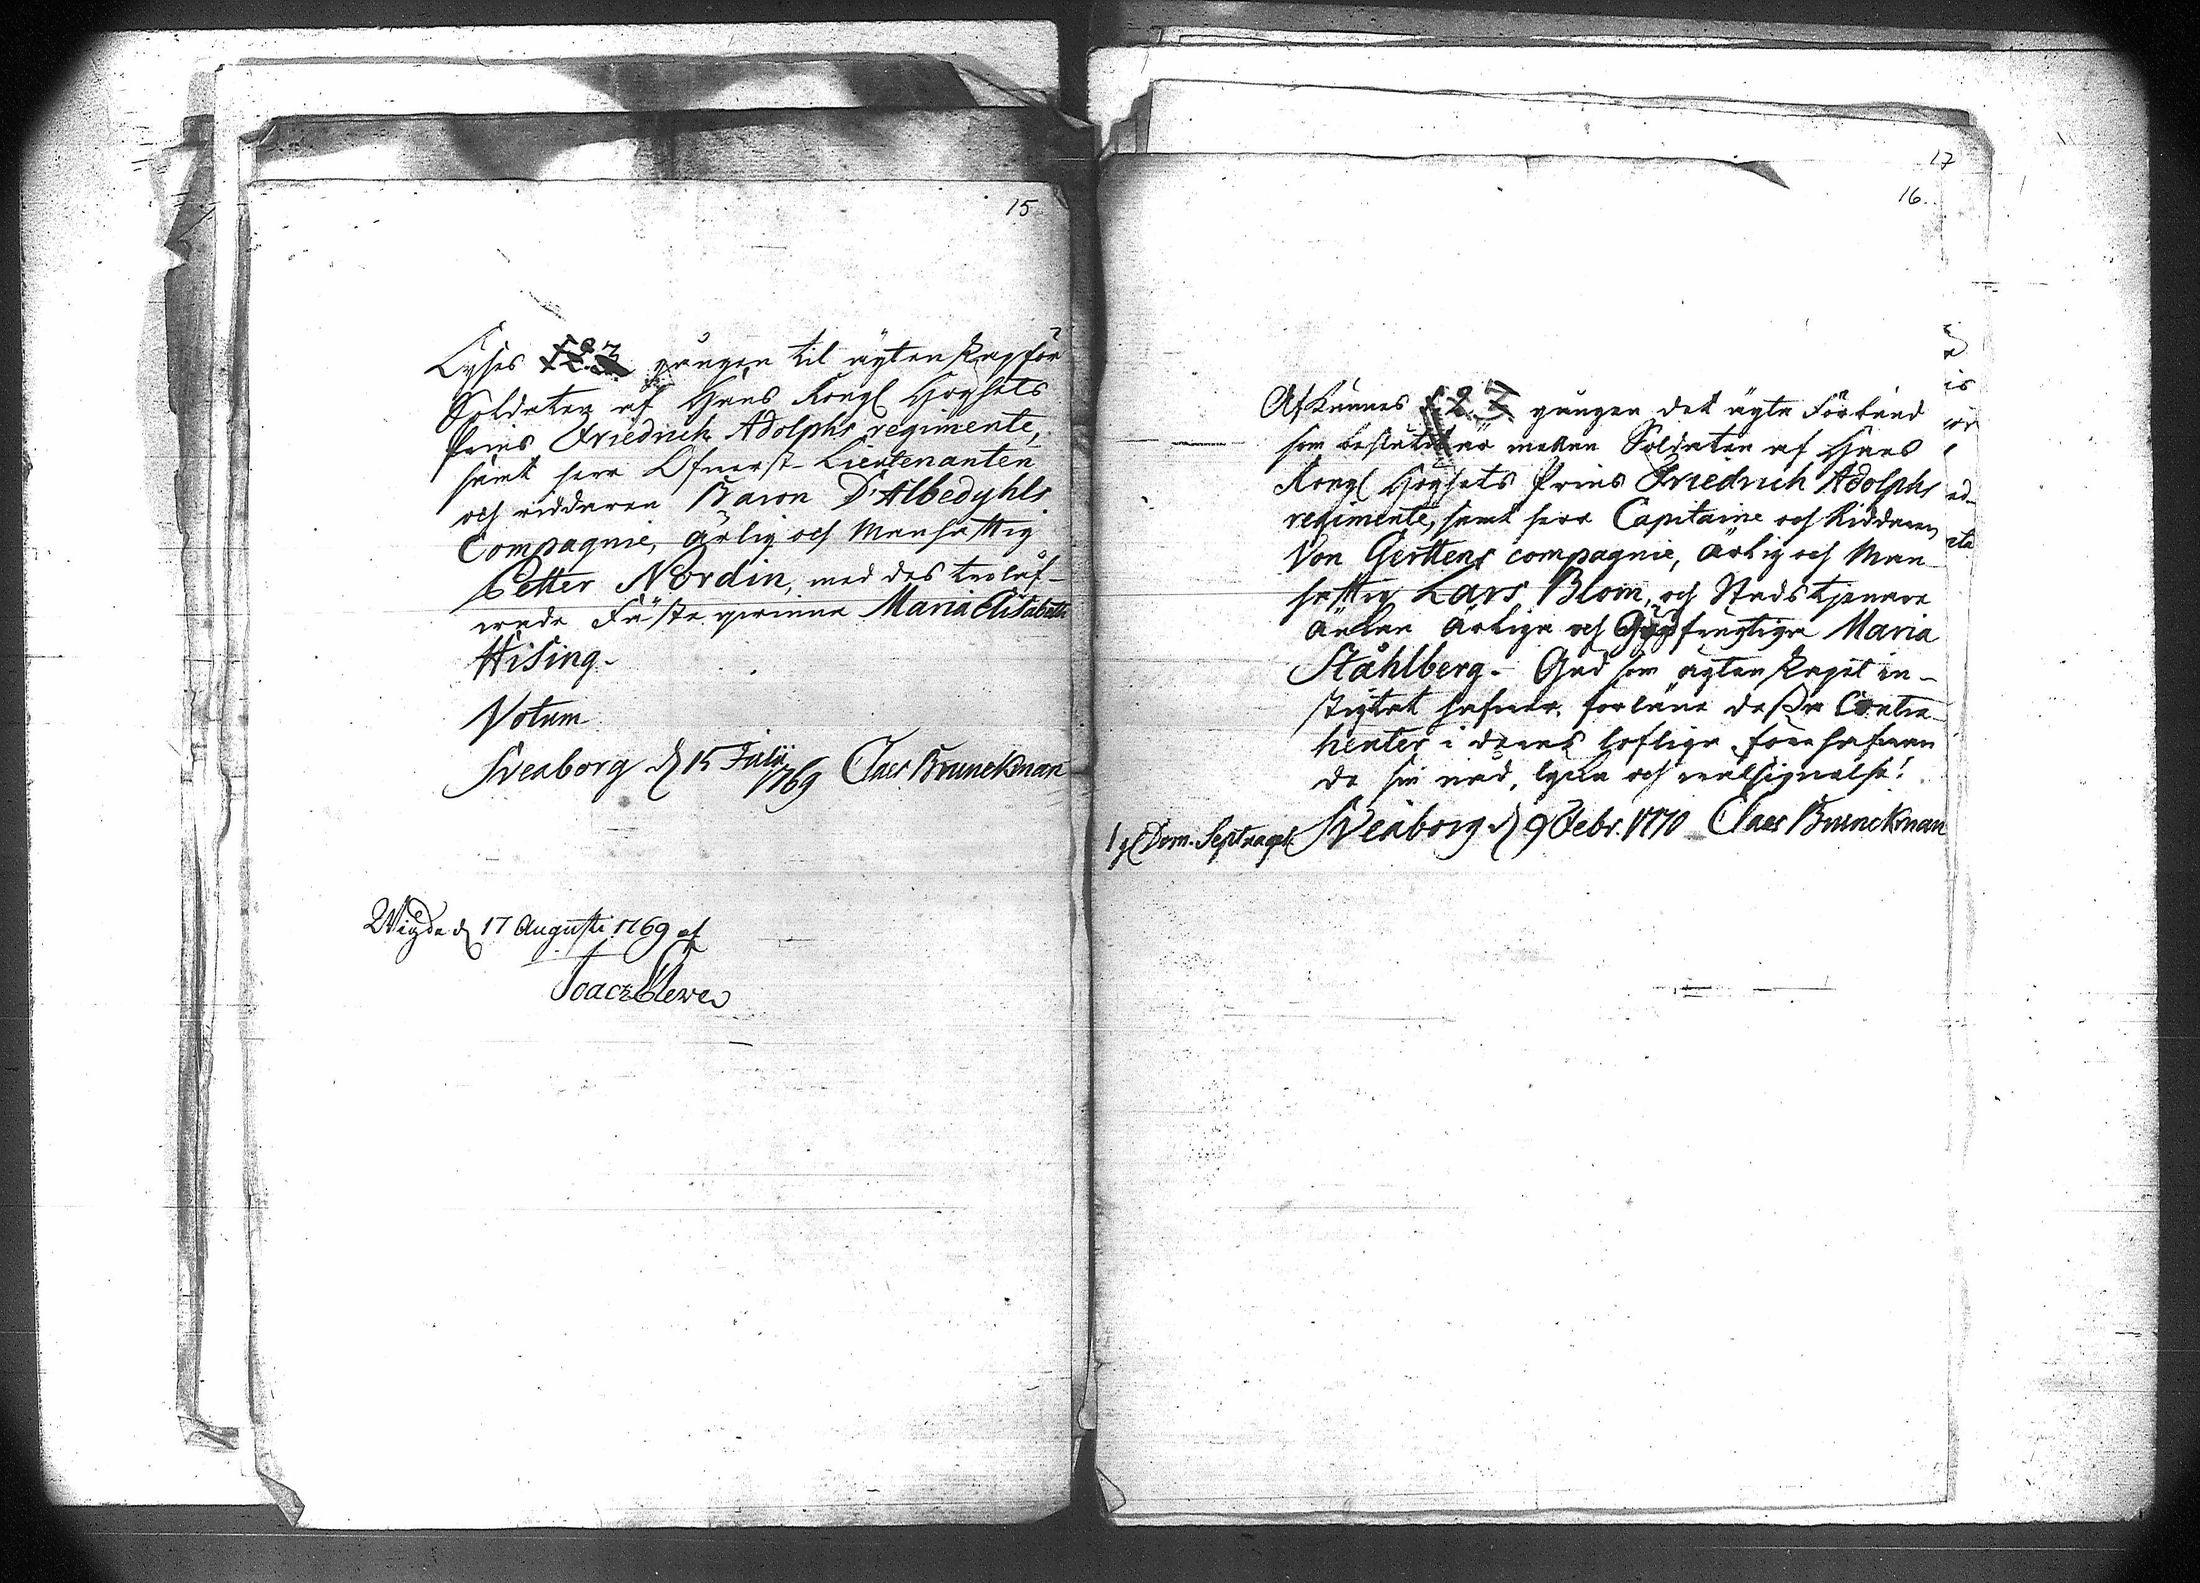 15
Lyses 1. 2. 3 gången til ägtenskap för
Soldaten af Hans Kongl Höghets
Prins Friedrich Adolphs regimente,
samt herr Öfverst-Lieutenanten
och riddaren Baron D'Albedyhls
Compagnie, ärlig och Manhaftig
Petter Nordin, med des trolåf-
wade Fästeqvinna Maria Elisabeth
Hising.
Votum
Sveaborg d 15 Julii 1769 Claes Brunckman
Wigde d 17 Augusti 1769 af
17
16.
Afkunnes 1. 2. 3 gången det ägta Förbund
som beslutit är mellan Soldaten af Hans
Kongl Höghets Prins Friedrich Adolphs
regimente, samt herr Capitaine och Riddaren
Von Gerttens compagnie, Ärlig och Man-
haftig Lars Blom, och Stads tjenare
änkan Ärliga och Gudfrugtiga Maria
Ståhlberg. Gud som ägtenskapet in-
stigtat hafver, förläne dessa Contra-
henter i deras lofliga förehafvan
de sin nåd, lycka och wälsignelse!
1 g Dom. Septuages Sveaborg d 9 Febr. 1770 Claes Brunckman